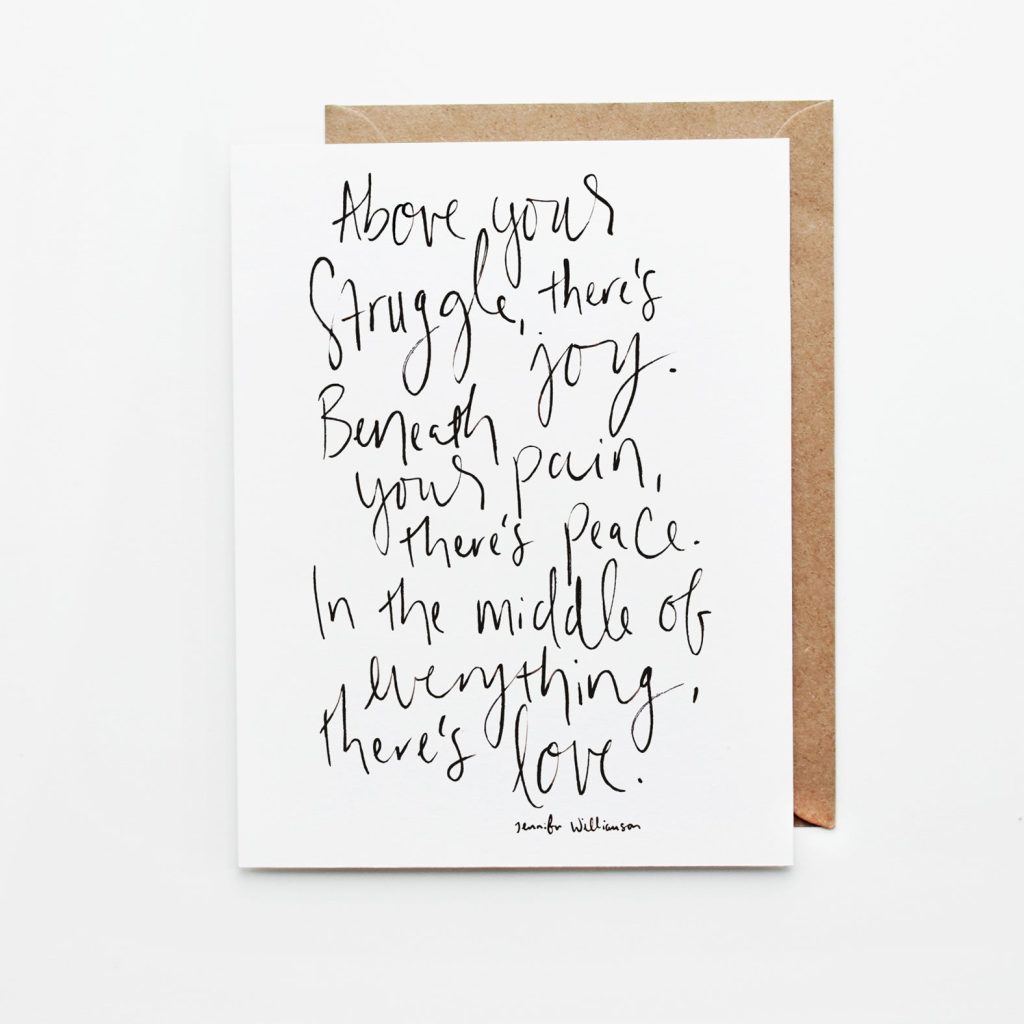 Above your
Struggle, there's
joy.
Beneath
your pain,
there's peace.
In the middle of
everything,
there's love.
Jennifer Williamson